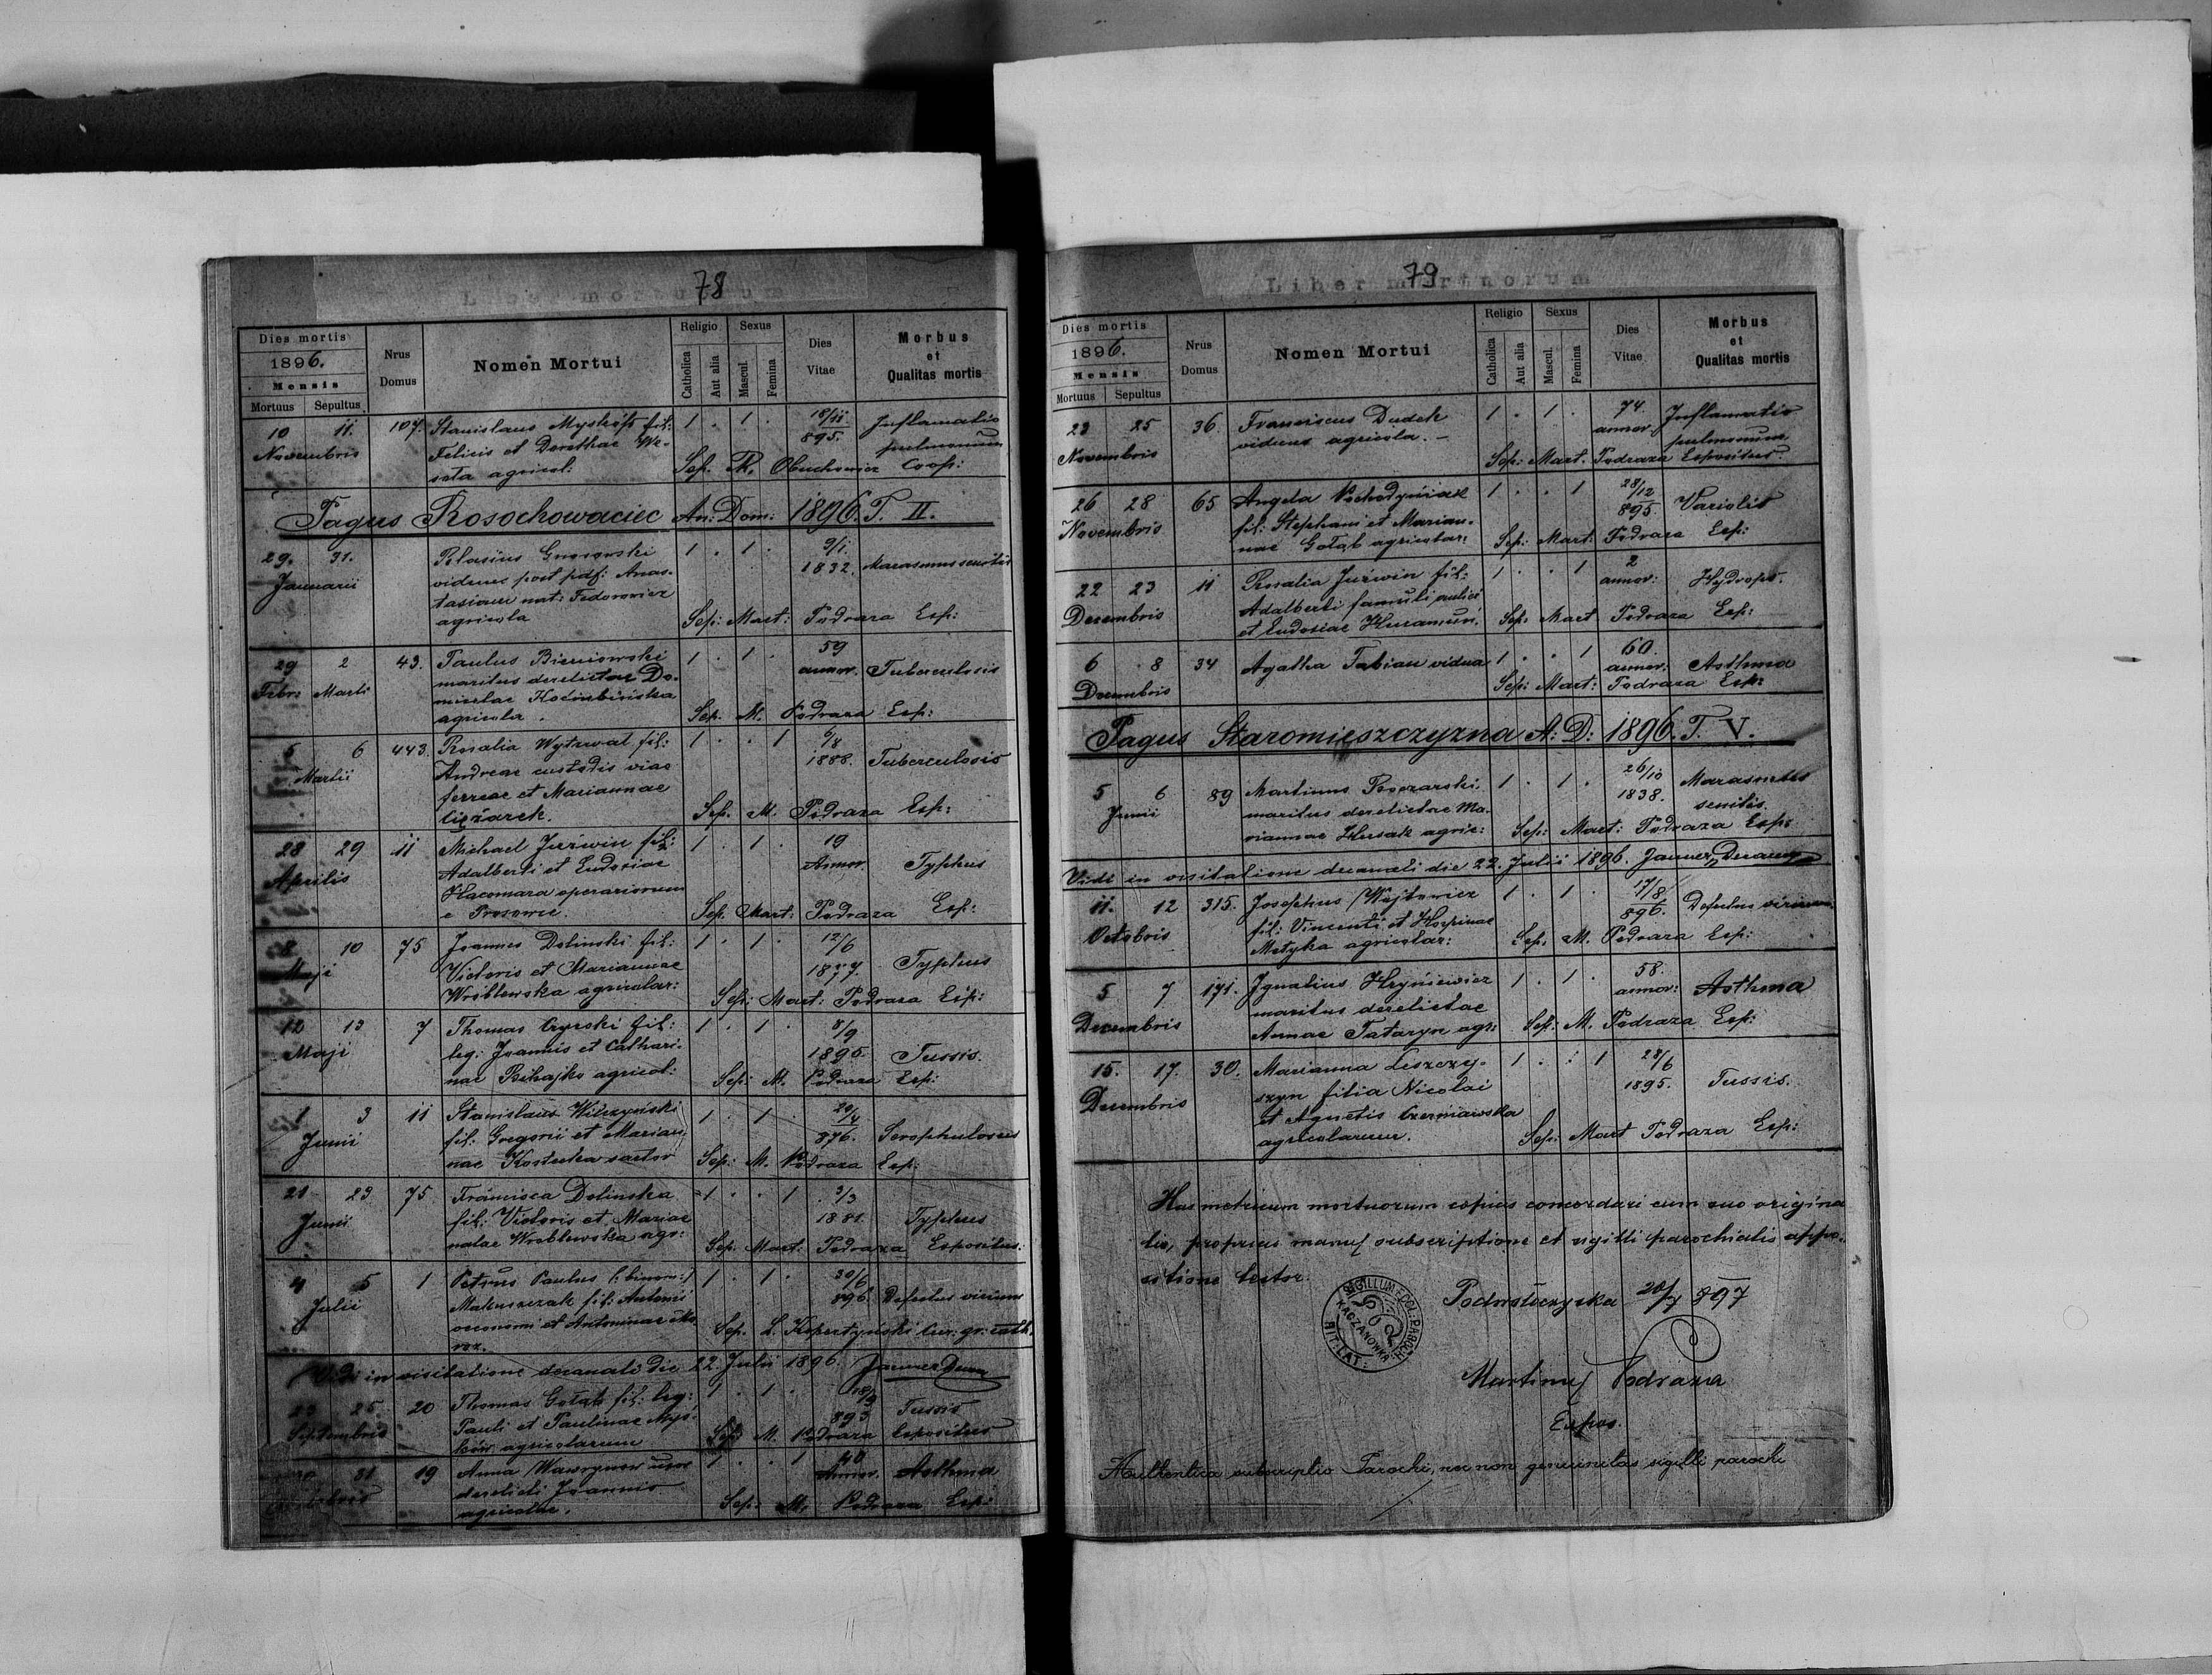 78
Liber mortuorum
Dies mortis
1896.
Mensis
Mortuus Sepultus
Nrus
Domus
Nomen Mortui
Religio
Catholica
Aut alia
Sexus
Mascul.
Femina
Dies
Vitae
Morbus
et
Qualitas mortis
10 11. 107. Stanislaus fil: 1 . 1 . 18/11 Inflamatio
Novembris Felicis et Dorotheae We- 895. pulmonum
sota agricol: Sep. Obuchowicz Coop:
Pagus Rosochowaciec An: Dom: 1896. T. II.
29. 31. Blasius 1 . 1 . 9/1.
Januarii viduus post pdf: Anas- 1832. Marasmus senilis
tasiam nat: Fedorowicz
agricola Sep: Mart: Podraza Esp:
29 2 43. Paulus Bieniowski 1 . 1 . 59
Febr: Martii maritus derelictae Do- annor. Tuberculosis
micelae
agricola. Sep. M. Podraza Esp:
5 6 443. Rosalia Wytrwal fil: 1 . . 1 9/8
Martii Andreae custodis viae 1888. Tuberculosis
ferreae et Mariannae
Ciężarek. Sep. M. Podraza Esp:
28 29 11 Michael Juźwin fil: 1 . 1 . 19
Aprilis Adalberti et Eudosiae Annor. Typhus
operariorum
e Sep. Mart: Podraza Esp:
8 10 75 Joannes Dolinski fil: 1 . 1 . 12/6
Maji Victoris et Mariannae 1877. Typhus
Wróblewska agricolar: Sep: Mart: Podraza Esp:
12 13 7 Thomas fil: 1 . 1 . 8/9
Maji leg: Joannis et Cathari- 1895. Tussis.
nae agricol: Sep: M. Podraza Esp:
1 3 11 Stanislaus Wilczyński 1 . 1 . 29/4
Junii fil. Gregorii et Marian- 896. Scrophulosus
nae Kostecka sartor Sep: M. Podraza Esp:
21 23 75 Francisca Dolinska 1 . . 1 3/3
Junii fil: Victoris et Mariae 1881. Typhus
natae Wroblewska agr: Sep. Mart: Podraza Espositus.
4 5 1 Petrus Paulus (: binom:) 1 . 1 . 30/6
Julii Makuszczak fil: Antonii 896. Defectus virium
oeconomi et Antoninae
Sep. L. Kopertyński Cur. gr: cath.
Vidi in visitatione decanali die 22. Julii 1896.
23 25 20 Thomas Gołąb fil: leg: 1 . 1 . 18/9 Tussis
Septembris Pauli et Paulinae Myś- 893
ków agricolarum Sep: M. Podraza Espositus
31 19 Anna Wawrynow uxor 1 . . 1 40
derelicti Joannis Annor. Asthma
agricolae. Sep: M. Podraza Esp:
79
Liber mortuorum
Dies mortis
1896.
Mensis
Mortuus Sepultus
Nrus
Domus
Nomen Mortui
Religio
Catholica
Aut alia
Sexus
Mascul.
Femina
Dies
Vitae
Morbus
et
Qualitas mortis
23 25 36. Franciscus Dudek 1 . 1 . 74. Inflamatio
Novembris viduus agricola. – annor. pulmonum
Sep: Mart. Podraza Espositus.
26 28 65 Angela 1 . . 1 28/12
Novembris fil: Stephani et Marian- 895. Variolis
nae Gołąb agricolar: Sep: Mart: Podraza Esp:
22 23 11 Rosalia Juźwin fil: 1 . . 1 2
Decembris Adalberti famuli aulici annor: Hydrops.
et Eudosiae Sep: Mart Podraza Esp:
6 8 34 Agatha Fabian vidua 1 . . 1 60.
Decembris annor: Asthma
Sep: Mart: Podraza Esp:
Pagus Staromieszczyzna A: D: 1896. T. V.
5 6 89 Martinus 1 . 1 . 26/10 Marasmus
Junii maritus derelictae Ma- 1838. senilis.
riannae Husak agric: Sep: Mart: Podraza Esp:
Vidi in visitatione decanali die 22. Julii 1896.
11. 12 315. Josephus Wojtowicz 1 . 1 . 17/8
Octobris fil: Vincenti et 896. Defectus virium.
Motyka agricolar: Sep: M. Podraza Esp:
5 7 171. Ignatius Hryniewicz 1 . 1 . 58.
Decembris maritus derelictae annor: Asthma
Annae Tataryn agr: Sep: M. Podraza Esp:
15. 17. 30. Marianna Leszczy- 1 . . 1 28/6
Decembris szyn filia Nicolai 1895. Tussis.
et Agnetis Czerniawska
agricolarum. Sep: Mart Podraza Esp:
Has metricum mortuorum copias concordari cum suo origina
li, proprias manus subscriptione et sigilli parochialis appo-
sitione testor.
SIGILLUM ECCL: PAROCH: RIT: LAT:
KACZANOWKA
Podwołoczyska 20/7 897
Martinus Podraza
Expos.
Authentica subscriptio Parochi, nec non genuinitas sigilli parochi